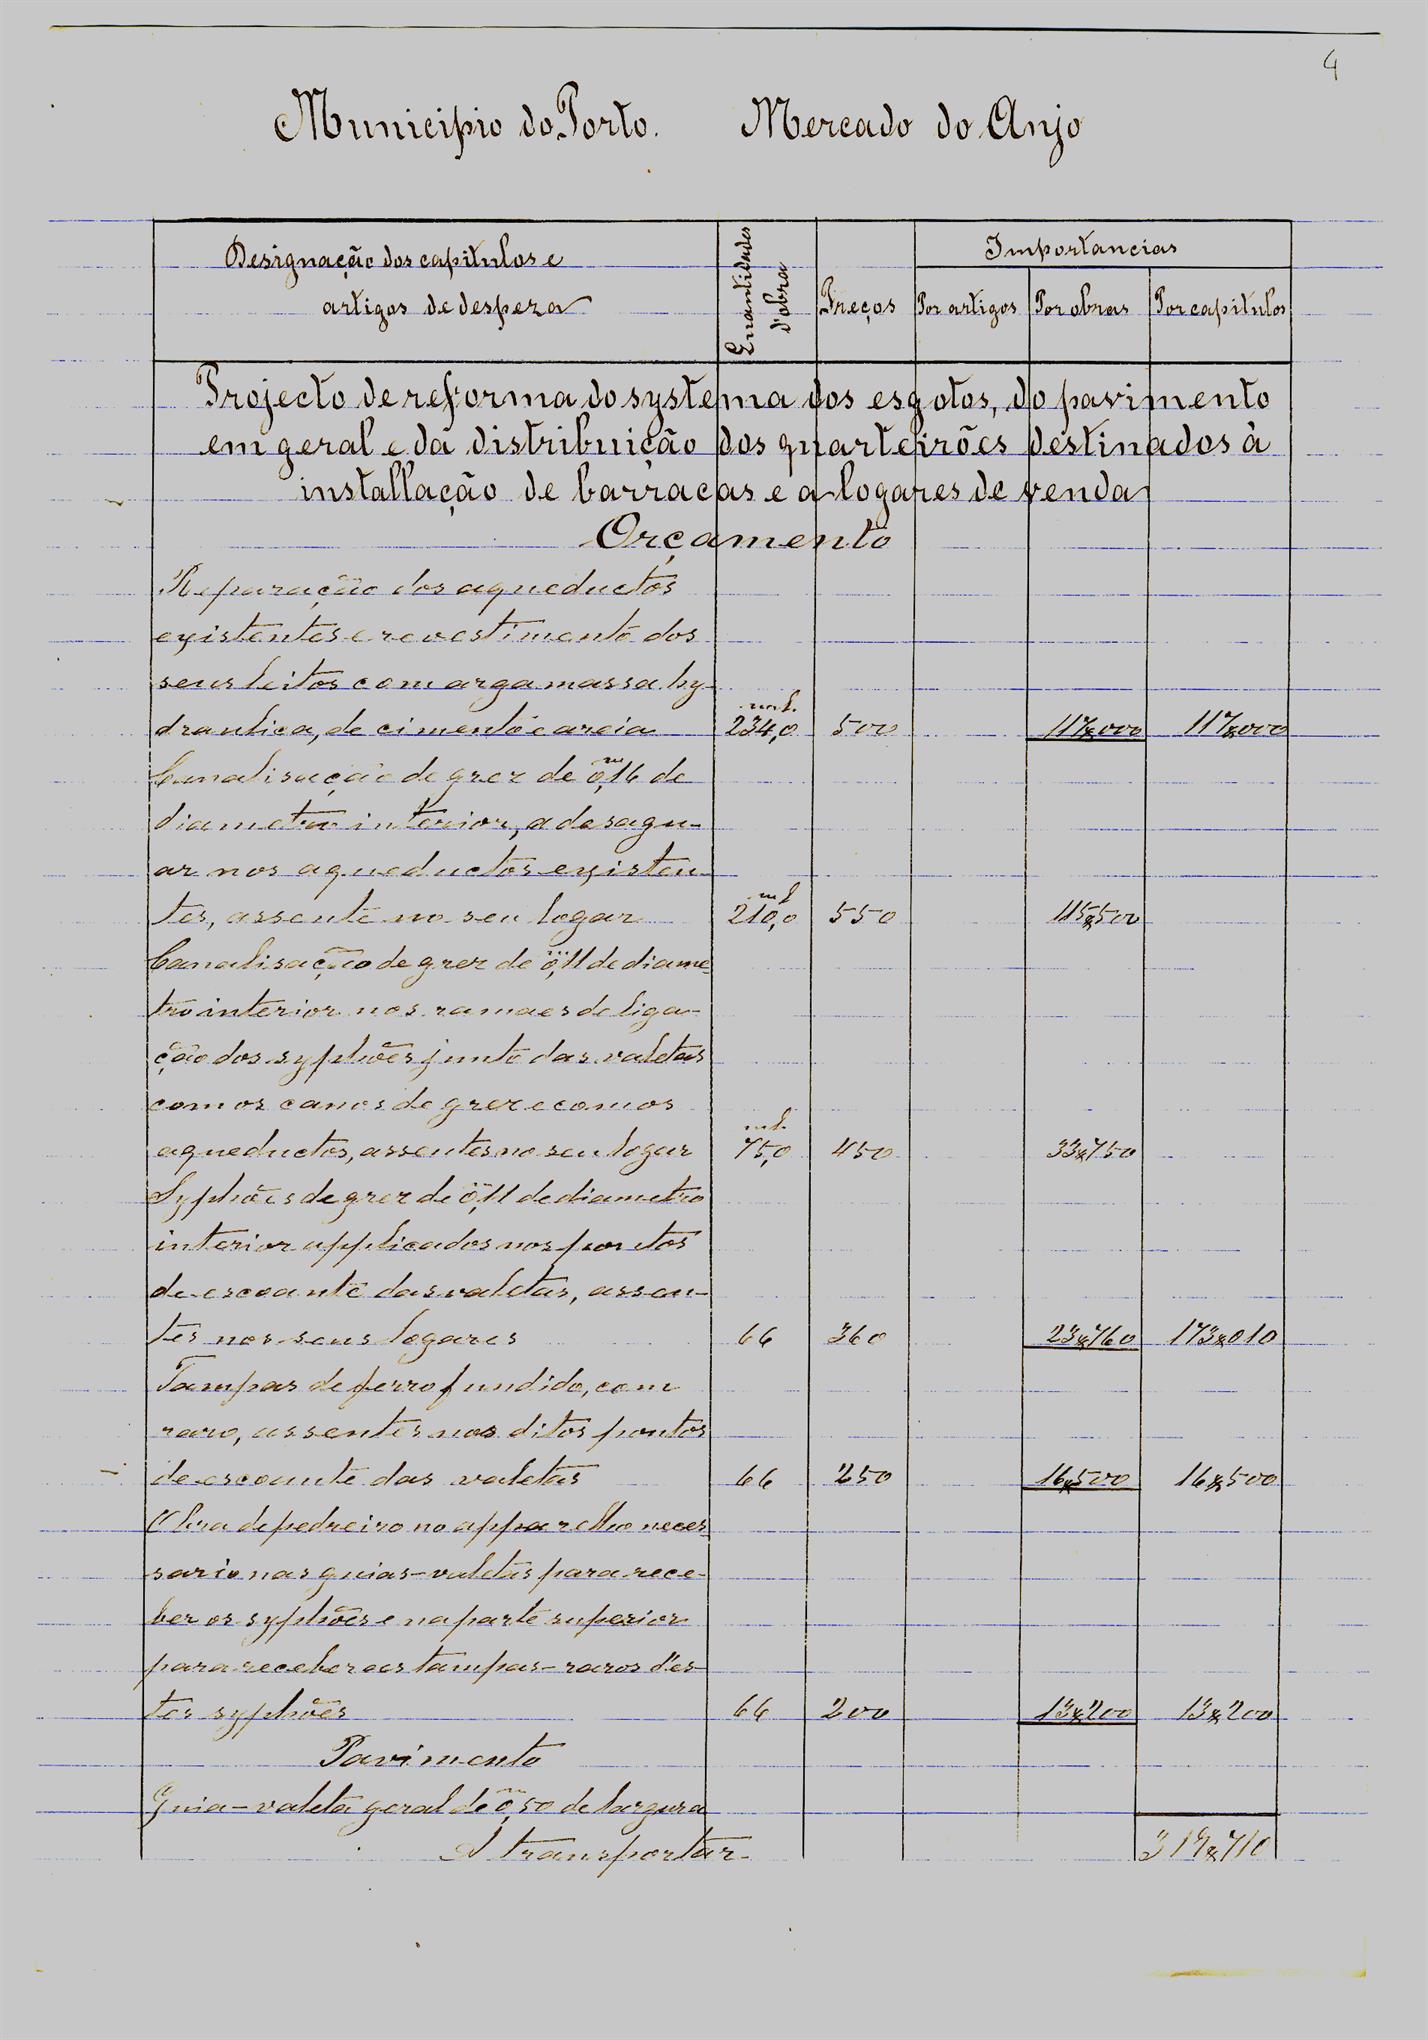 4
Municipio do Porto. Mercado do Anjo
Designação dos capitulos e
artigos de despeza
Quantidades
d'obra
Preços
Importancias
Por artigos
Por obras
Por capitulos
Projecto de reforma do systema dos esgotos, do pavimento
em geral e da distribuição dos quarteirões destinados à
installação de barracas e a logares de venda
Orçamento
Reparação dos aqueductos
existentes e revestimento dos
seus leitos com argamassa hy-
draulica, de cimento e areia 234,0 m.l. 500 117$000 117$000
Canalisação de grez de 0,m16 de
diametro interior, a desagu-
ar nos aqueductos existen-
tes, assente no seu logar 210,0 ml 550 115$500
Canalisação de grez de 0,m11 de diame-
tro interior nos ramaes de liga-
ção dos syphões junto das valetas
com os canos de grez e com os
aqueductos, assentes no seu logar 75,0 ml. 450 33$750
Syphões de grez de 0,m11 de diametro
interior applicados nos pontos
de escoante das valetas, assen-
tes nos seus logares 66 360 23$760 173$010
Tampas de ferro fundido, com
raro, assentes nos ditos pontos
de escoante das valetas 66 250 16$500 16$500
Obra de pedreiro no apparelho neces-
sario nas guias-valetas para rece-
ber os syphões e na parte superior
para receber as tampas-raros d'es-
tes syphões 66 200 13$200 13$200
Pavimento
Guia-valeta geral de 0,m50 de largura
A transportar 319$710